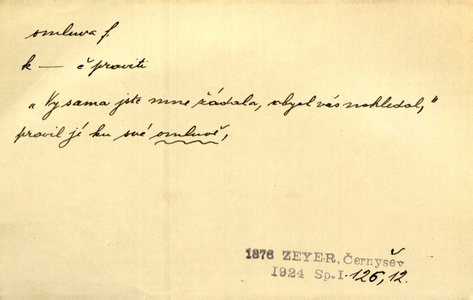 omluva f.
k — ě praviti
„Vy sama jste mne žádala, abych vás nehledal,"
pravil jé ku své omluvě,
1876 ZEYER, Černyšev
1924 Sp.I. 126,12.